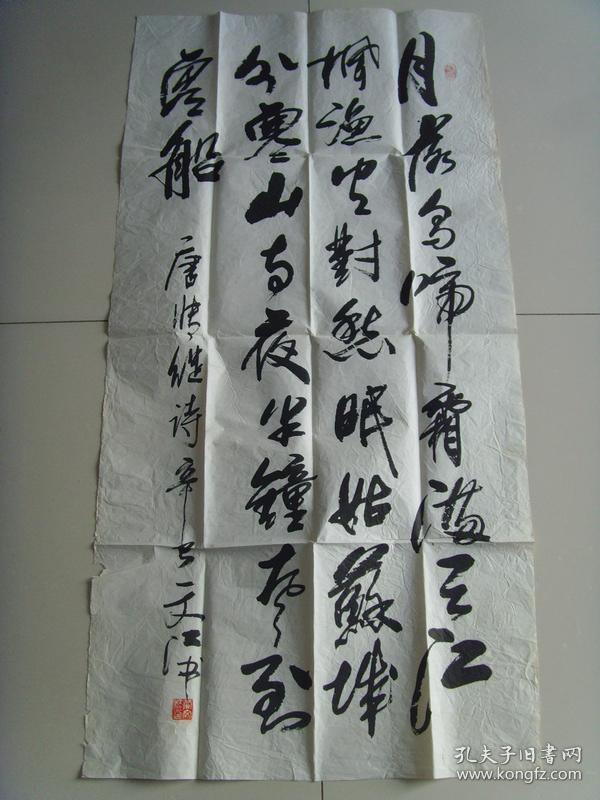 月落乌啼霜满天江
枫渔火对愁眠姑苏城
外寒山寺夜半钟声到
客船
唐张继诗辛巳文江书
孔夫子旧书网
www.kongfz.com